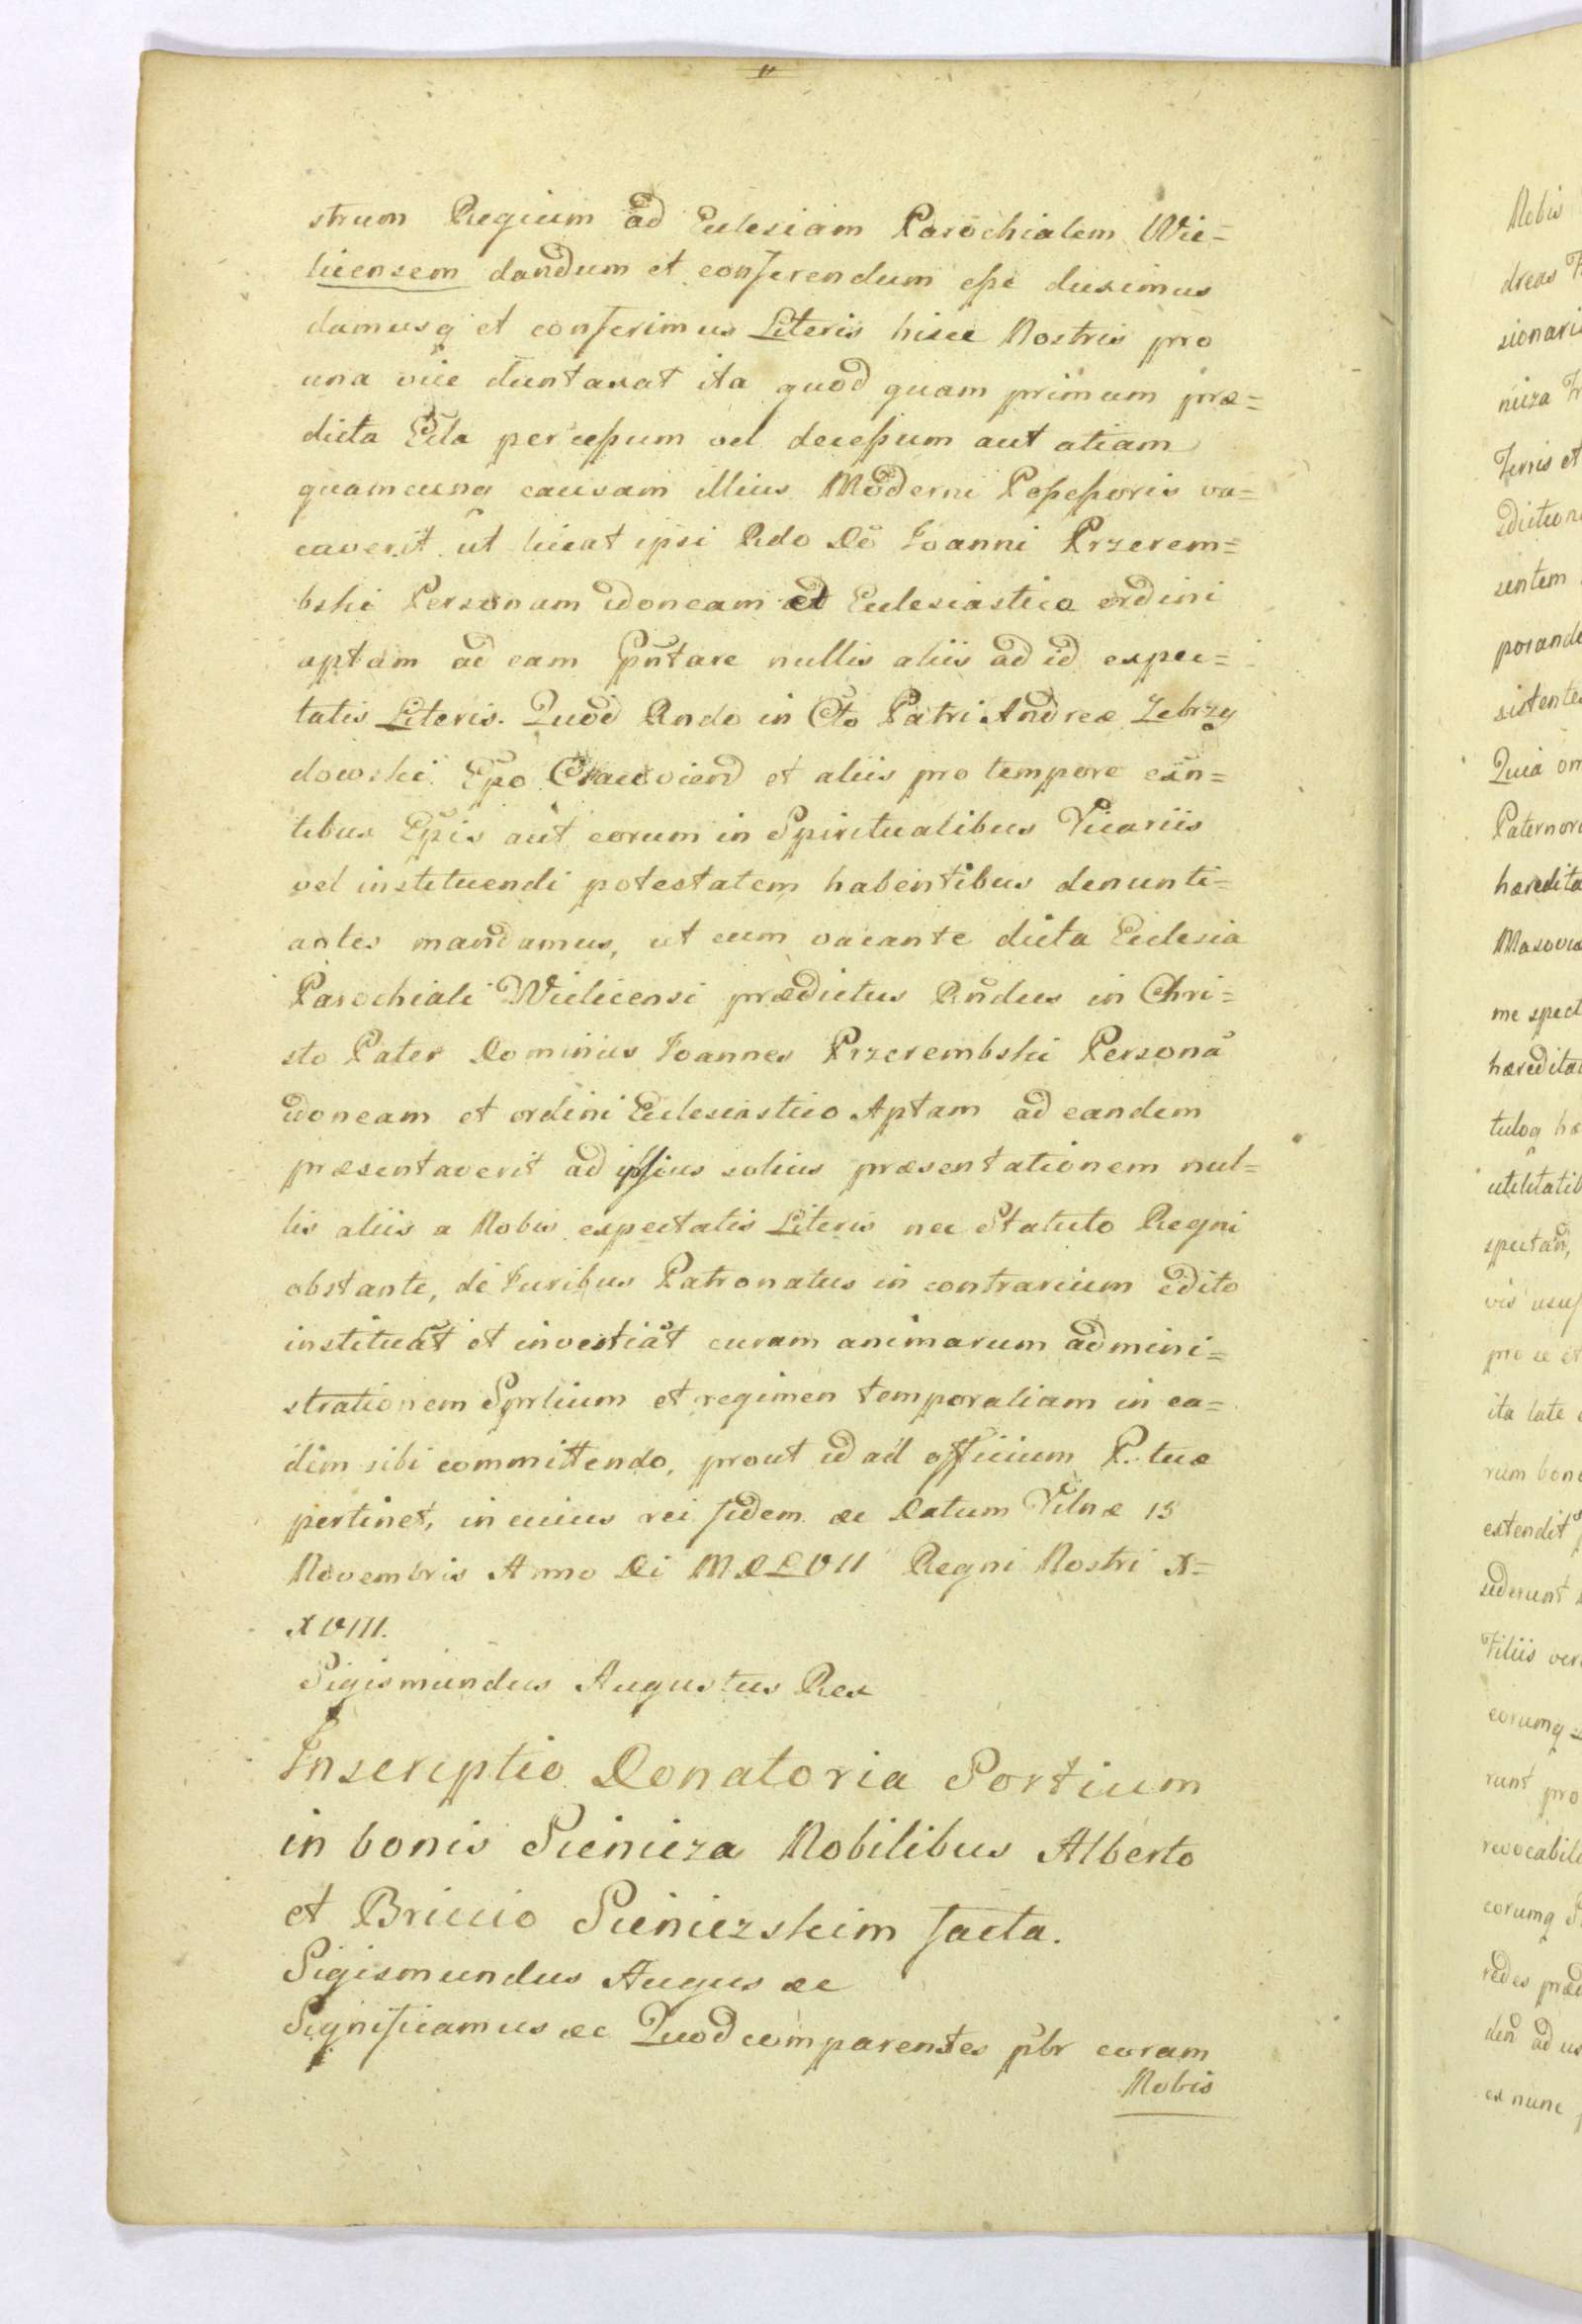 strum Regium ad Eclesiam Parochialem Wie=
licensem dandum et conferendum eße duximus
damusq et conferimus Literis hisce Nostris pro
una vice duntaxat ita quod quam primum præ=
dicta Ecla per ceßum vel deceßum aut aliam
quamcunq causam illius Moderni Poßeßoris va=
caverit ut liceat ipsi Rdo Dō Joanni Przerem=
bski Personam idoneam et Eclesiastico ordini
aptam ad eam pntare nullis aliis ad id expec=
tatis Literis. Quod Rndo in Cto Patri Andreæ Zebrzy
dowski Epo Cracovien et aliis pro tempore exn=
tibus Epis aut eorum in Spiritualibus Vicariis
vel instituendi potestatem habentibus denunti=
antes mandamus, ut cum vacante dicta Eclesia
Parochiali Wielicensi prædictus Rndus in Chri=
sto Pater Dominus Joannes Przerembski Personā
idoneam et ordini Eclesiastico Aptam ad eandem
præsentaverit ad ipsius solius præsentationem nul=
lis aliis a Nobis expectatis Literis nec Statuto Regni
obstante, de Juribus Patronatus in contrarium edito
instituāt et investiāt curam animarum admini=
strationem Sprlium et regimen temporaliam in ea=
dem sibi committendo, prout id ad officium P. tuæ
pertinet, in cuius rei fidem æc Datum Vilnæ 15
Novembris Anno Di MDLVII Regni Nostri X=
XVIII.
Sigismundus Augustus Rex
Inscriptio Donatoria Sortium
in bonis Sienicza Nobilibus Alberto
et Briccio Sieniczskim facta.
Sigismundus Augus æc
Significamus æc Quod comparentes pbr coram
Nobis